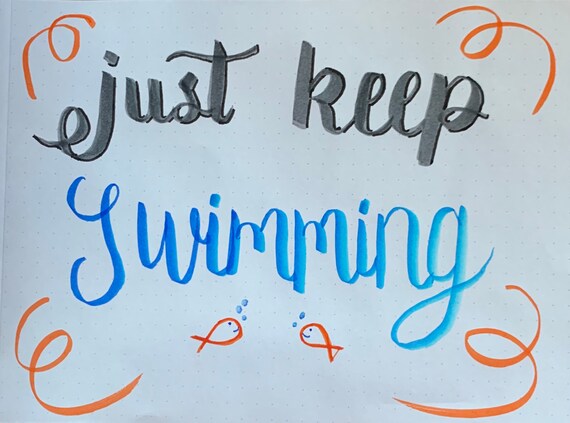 just keep
Swimming